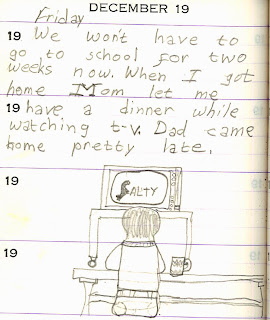 DECEMBER 19
Friday
19 We won't have to
go to school for two
weeks now. When I got
home Mom let me
19 have a dinner while
watching t-v. Dad came
home pretty late.
SALTY
19
19